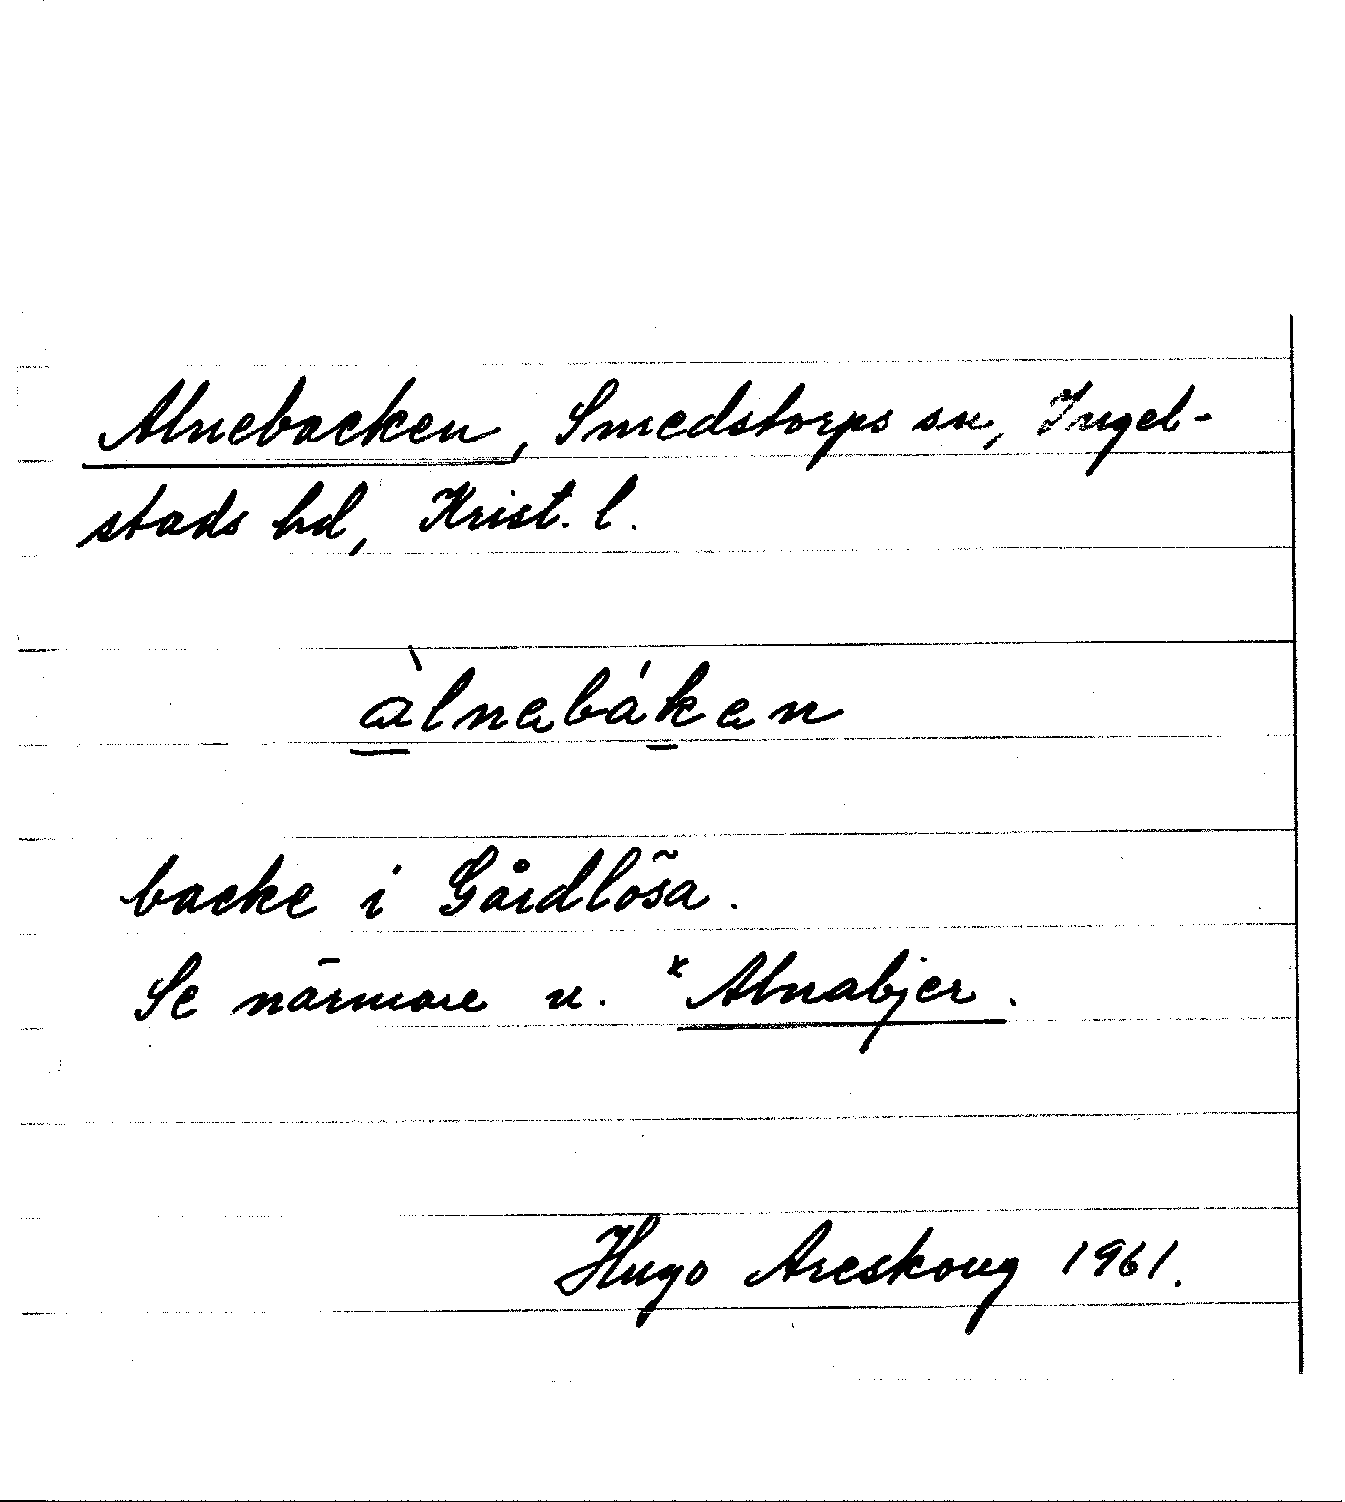 Alnebacken, Smedstorps sn, Ingel-
stads hd, Krist. l.
àlnebáken
backe i Gårdlösa.
Se närmare u. *Alnabjer.
Hugo Areskoug 1961.